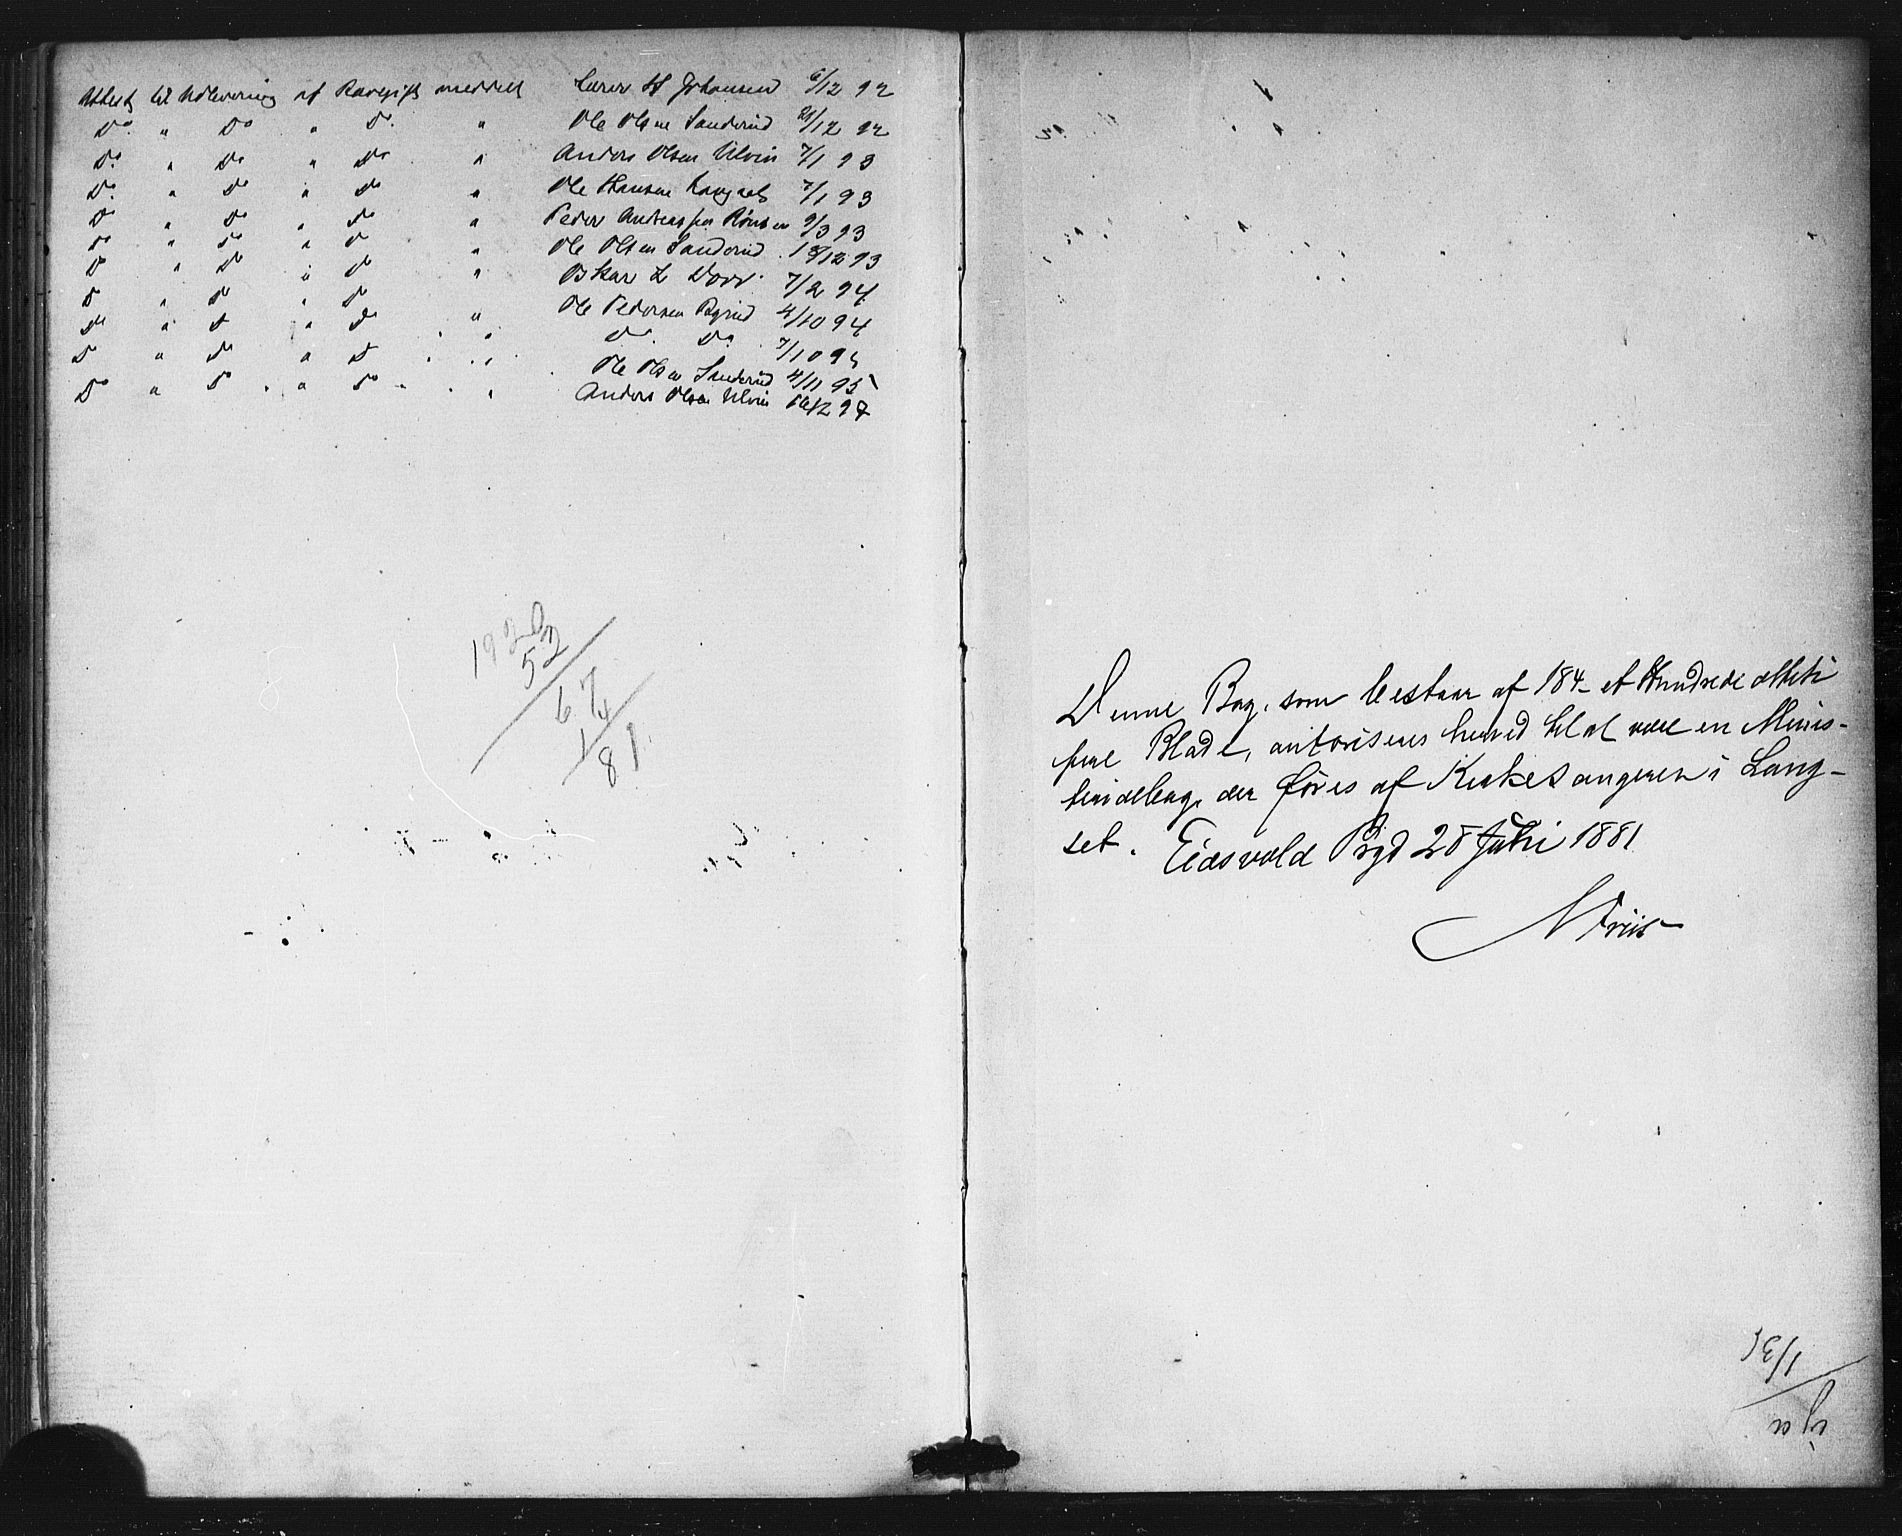 Attest til Udlevering af Rævegift meddelt Lærer H Johansen 6/12 92
Do " Do " Do " Ole Olsen Sanderud 21/12 92
Do " Do " Do " Anders Olsen Ulvin 7/1 93
Do " Do " Do " Ole Hansen Langset 7/1 93
Do " Do " Do " Peder Andreassen 9/3 93
Do " Do " Do " Ole Olsen Sanderud 18/12 93
Do " Do " Do " Oskar L 7/2 94
Do " Do " Do " Ole Pedersen 4/10 94
Do " Do " Do " Do Do 7/10 95
Do " Do " Do " Ole Olsen Sanderud 4/11 95
Do " Do " Do " Anders Olsen Ulvin 97
1920
53
67
14
81.
Denne Bog, som bestaar af 184 - et Hundrede otteti
fire Blade, autoriseres herved til at være en Minis-
terialbog, der føres af Kirkesangeren i Lang-
set. Eidsvold Prgd 28 Juli 1881
N Friis